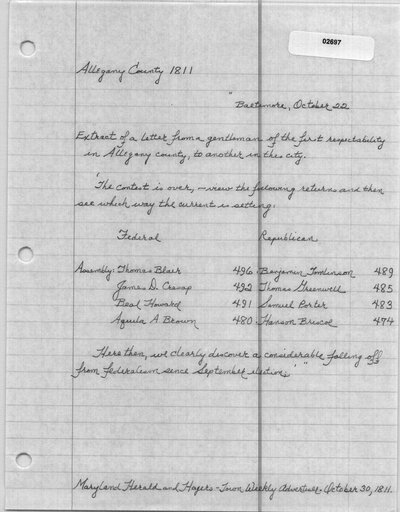 02697
Allegany County 1811
"Baltimore, October 22
Extract of a letter from a gentleman of the first respectability
in Allegany county, to another in this city.
'The contest is over, — view the following returns and then
see which way the current is setting:
Federal Republican
Assembly: Thomas Blair 496 Benjamin Tomlinson 489
James D. Cresap 492 Thomas Greenwell 485
Beal Howard 491 Samuel Porter 483
Aquila A Brown 480 Hanson Briscoe 474
Here then, we clearly discover a considerable falling off
from federalism since September election.' "
Maryland Herald and Hagers-Town Weekly Advertiser. October 30, 1811.